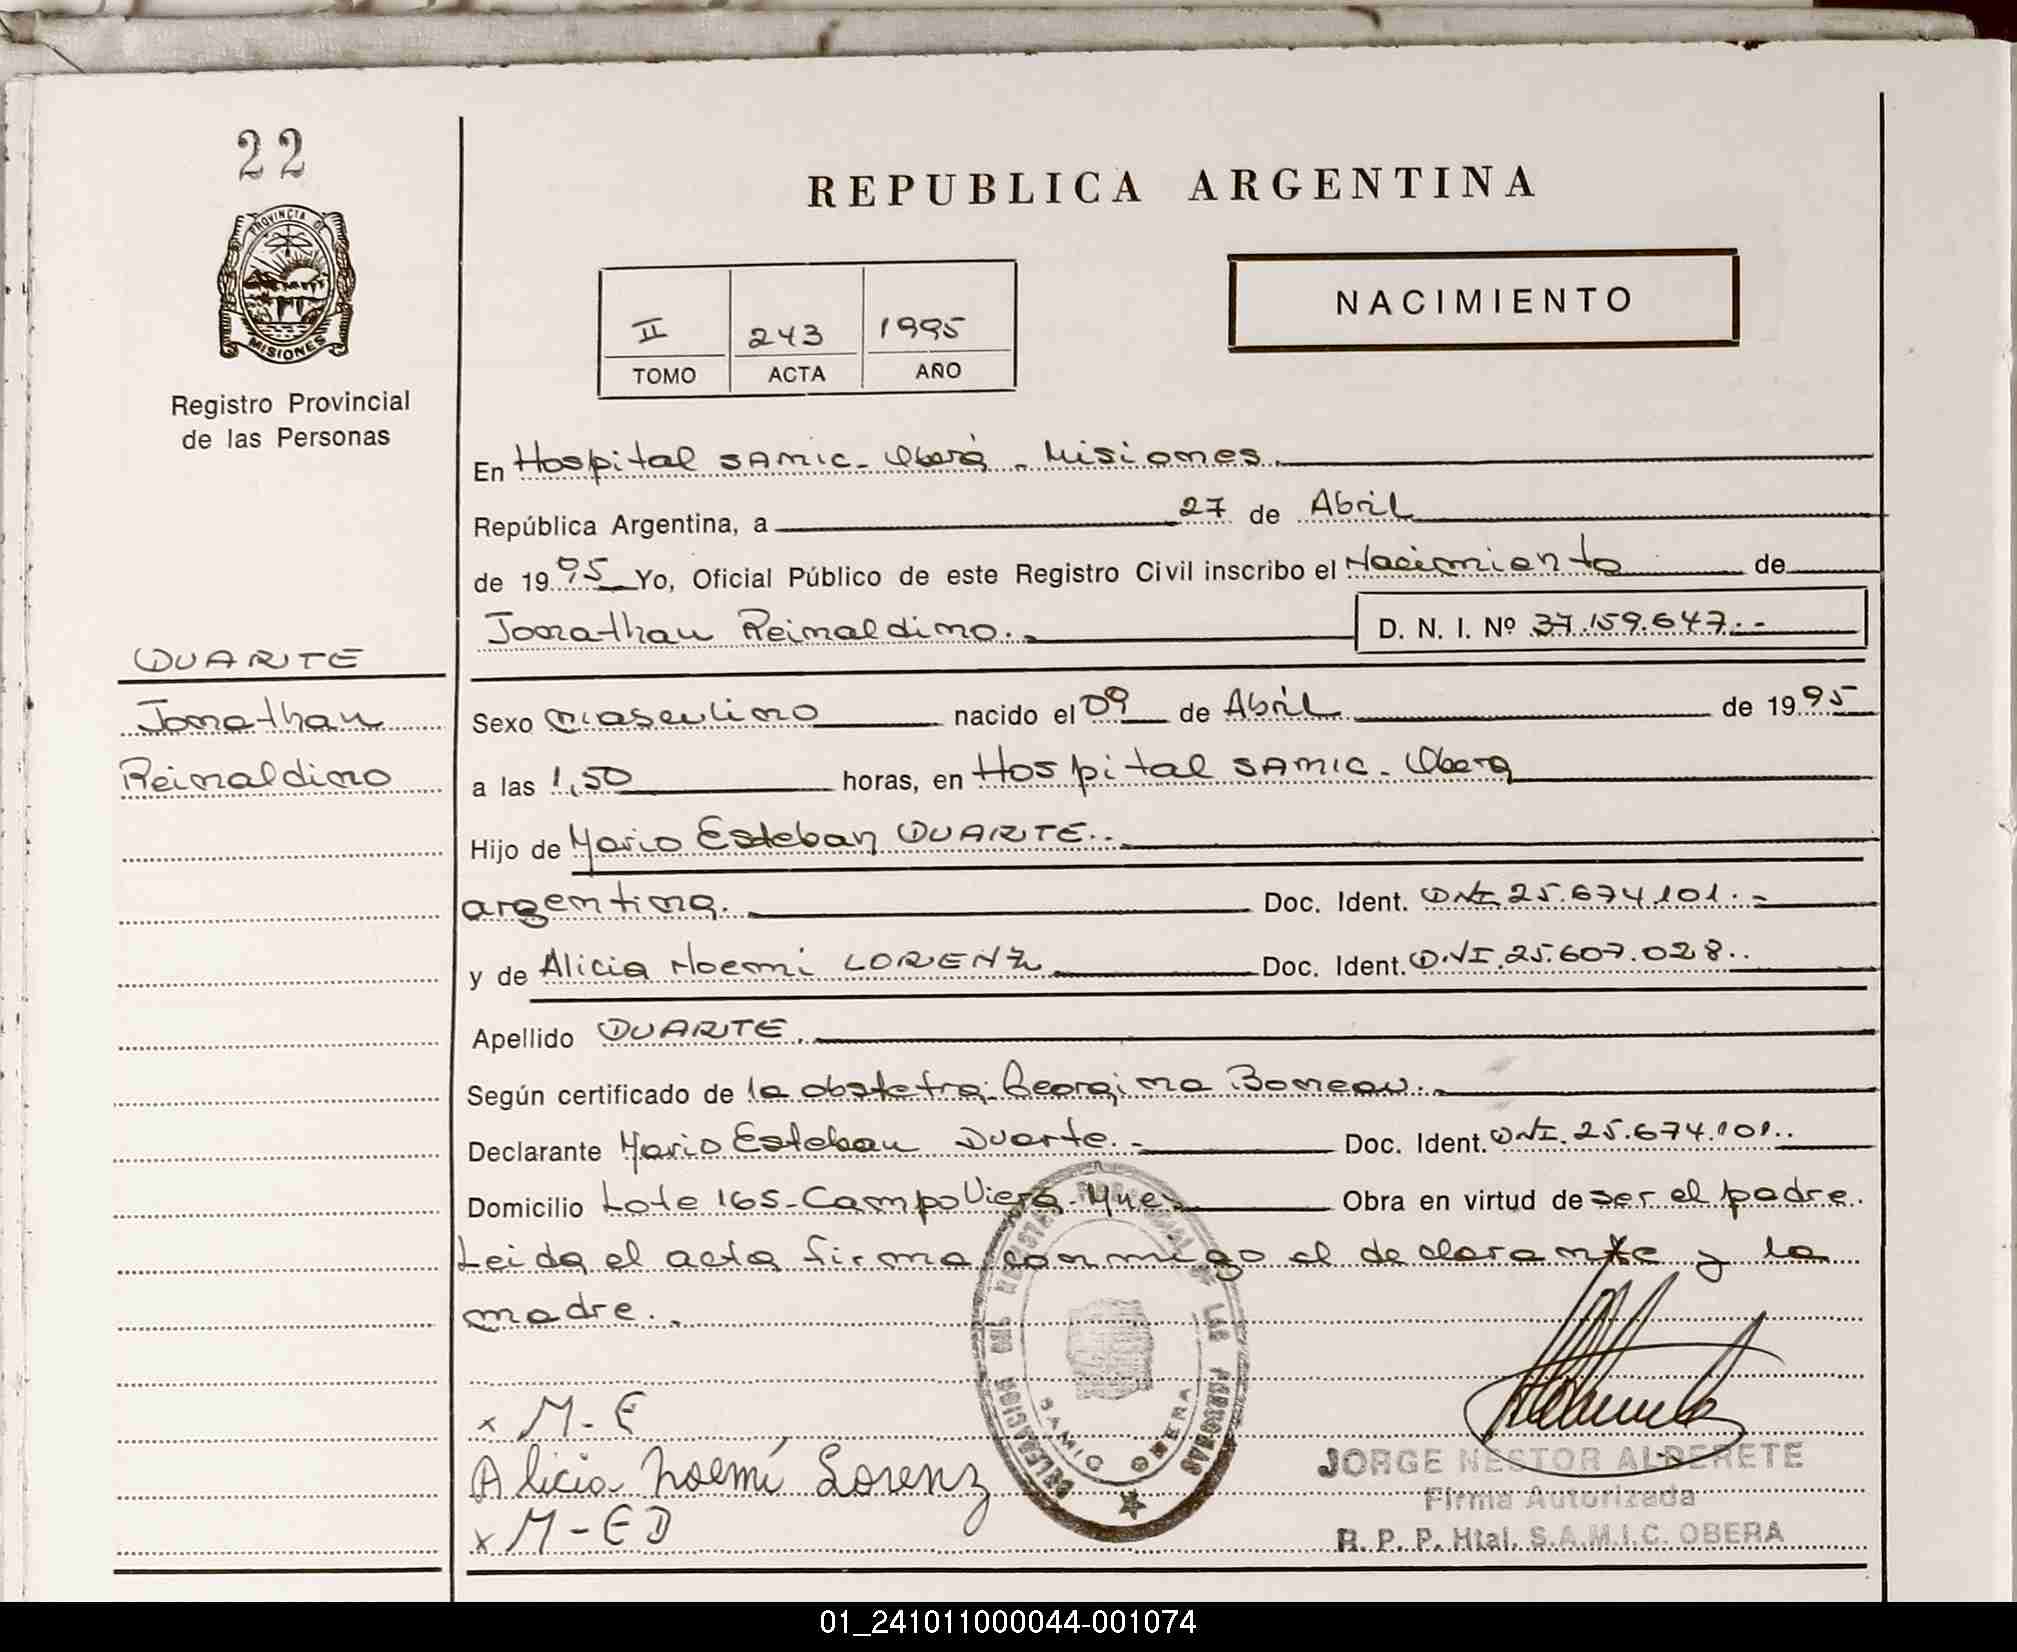 22
PROVINCIA DE
MISIONES
Registro Provincial
de las Personas
REPUBLICA ARGENTINA
II 243 1995
TOMO ACTA AÑO
NACIMIENTO
En Hospital SAMIC - Oberá - Misiones.
República Argentina, a 27 de Abril
de 1995 Yo, Oficial Público de este Registro Civil inscribo el Nacimiento de
Jonathan Reinaldino.- D. N. I. Nº 37.159.647.-
DUARTE
Jonathan
Reinaldino
Sexo masculino nacido el 09 de Abril de 1995
a las 1,50 horas, en Hospital SAMIC - Obera
Hijo de Mario Esteban DUARTE..
argentina. Doc. Ident. DNI 25.674.101.-
y de Alicia Noemi LORENZ Doc. Ident. D.N.I. 25.607.028..
Apellido DUARTE.
Según certificado de la obstetra: Georgina Boneau.-
Declarante Mario Esteban Duarte.- Doc. Ident. DNI. 25.674.101..
Domicilio Lote 165 - Campo Viera - Mnes Obra en virtud de ser el padre.
Leida el acta firma conmigo el declarante y la
madre..
x M-E
Alicia Noemí Lorenz
x M-ED
DELEGACION DEL REGISTRO PROVINCIAL DE LAS PERSONAS
SAMIC OBERA
JORGE NESTOR ALDERETE
Firma Autorizada
R. P. P. Htal. S.A.M.I.C. OBERA
01_241011000044-001074